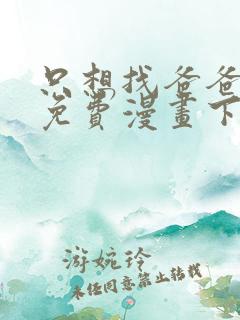 只想找爸爸
免費漫畫下
游婉玲
未经同意禁止转载